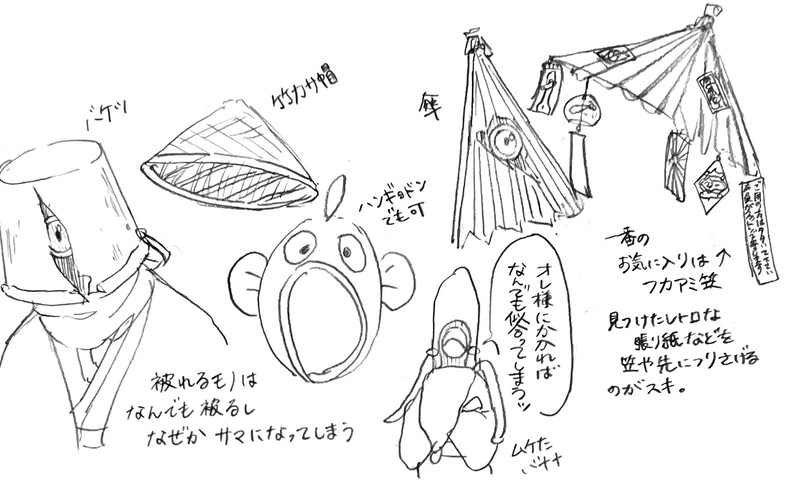 バケツ
竹カサ帽
傘
ハンギョドン
でも可
オレ様にかかれば
なんでも似合ってしまうッ
ムケた
バナナ
被れるモノは
なんでも被るし
なぜか サマになってしまう
一番の
お気に入りは↑
フカアミ笠
見つけたレトロな
張り紙などを
笠や先につりさげる
のがスキ。